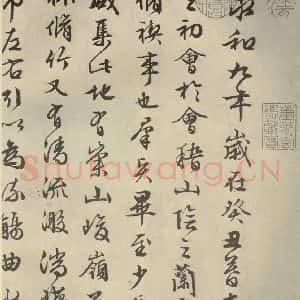 永和九年歲在癸丑暮
之初會於會稽山陰之蘭
脩禊事也羣賢畢至少
咸集此地有崇山峻嶺
林脩竹又有清流激湍
左右引以為流觴曲
Shufawang.CN